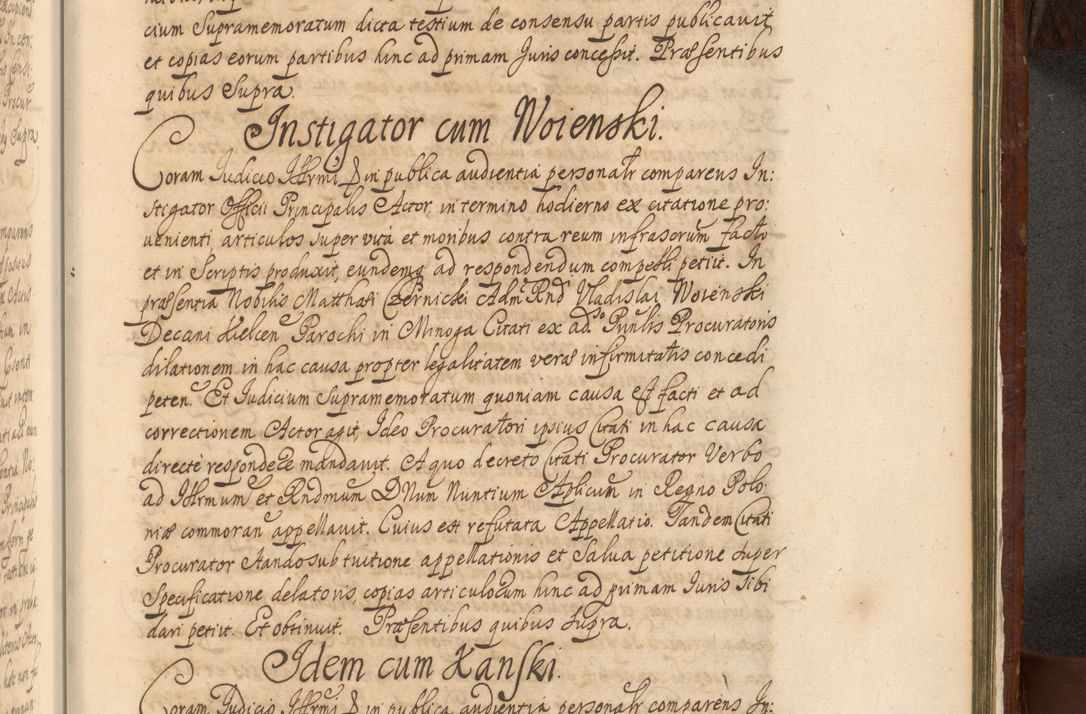 cium Supramemoratum dicta testium de consensu partis publicavit
et copias eorum partibus hinc ad primam Juris concessit. Præsentibus
quibus Supra.
Instigator cum Woienski.
Coram Iudicio Illrmi D in publica audientia personalr comparens In:
stigator Officii Principalis Actor, in termino hodierno ex citatione pro:
uenienti, articulos super vita et moribus contra reum infrascrum facto
et in Scriptis produxit, eundemq ad respondendum compelli petiit. In
præsentia Nobilis Matthæi Czernicki Adm Rnd Vladislai Woienski
Decani Kielcen Parochi in Minoga Citati ex ad.so Punlis Procuratoris
dilationem in hac causa propter legalitatem veræ infirmitatis concedi
peten. Et Iudicium Supramemoratum quoniam causa est facti et ad
correctionem Actor agit, Ideo Procuratori ipsius Citati in hac causa
directè respondere mandavit. A quo decreto Citati Procurator Verbo
ad Illrmum et Rndmum DNum Nuntium Aplicum in Regno Polo:
niæ commoran appellavit. Cuius est refutata Appellatio. Tandem Citati
Procurator stando sub tuitione appellationis et salua petitione super
Specificatione delatoris, copias articulorum hinc ad primam Iuris sibi
dari petiit. Et obtinuit. Præsentibus quibus supra.
Idem cum Kanski.
Coram Iudicio Illrmi D in publica audientia personalr comparens In: